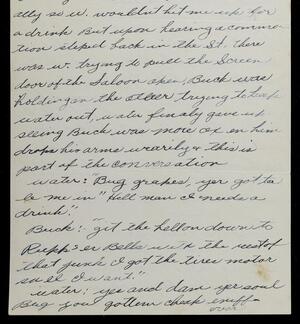 ally so w. wouldnt hit me up for
a drink But upon hearing a commo-
tion steped back in the St. there
was w. trying to pull the Screen
door of the Saloon open, Buck was
holding on the other trying to keep
water out, water finaly gave up
seeing Buck was more ox en him
drops his arms wearily & this is
part of the conversation
water: "Bug grapes, yer got ta
le me in" "hell man I needs a
drink",
Buck: "git the hell on down to
Rupps er Bells with the rest of
that junk I got the tires motor
is all I want."
water: yes and dam yer soul
Bug you gottem cheap enuff-
over